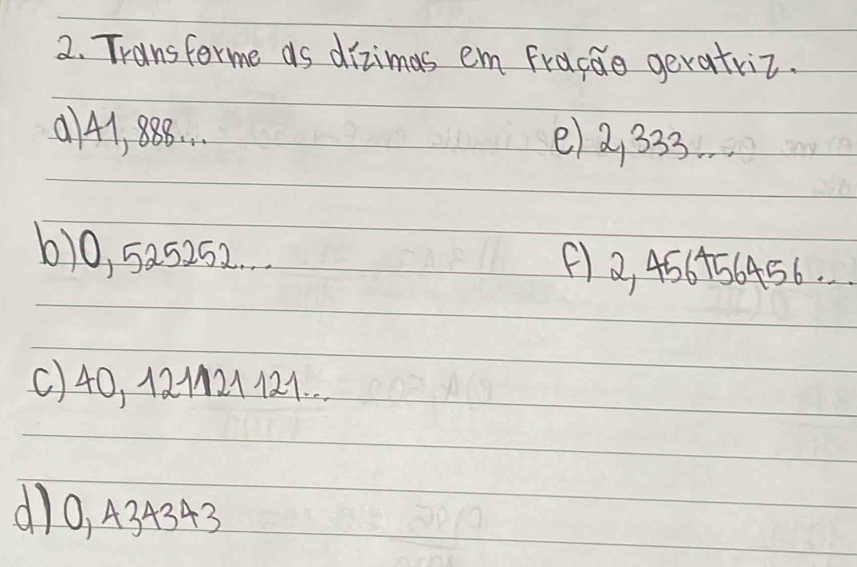 2. Transforme as dízimas em Fração geratriz.
a) 41,888...
e) 2,333...
b) 0,525252...
f) 2,456456456...
c) 40,121121121...
d) 0,434343